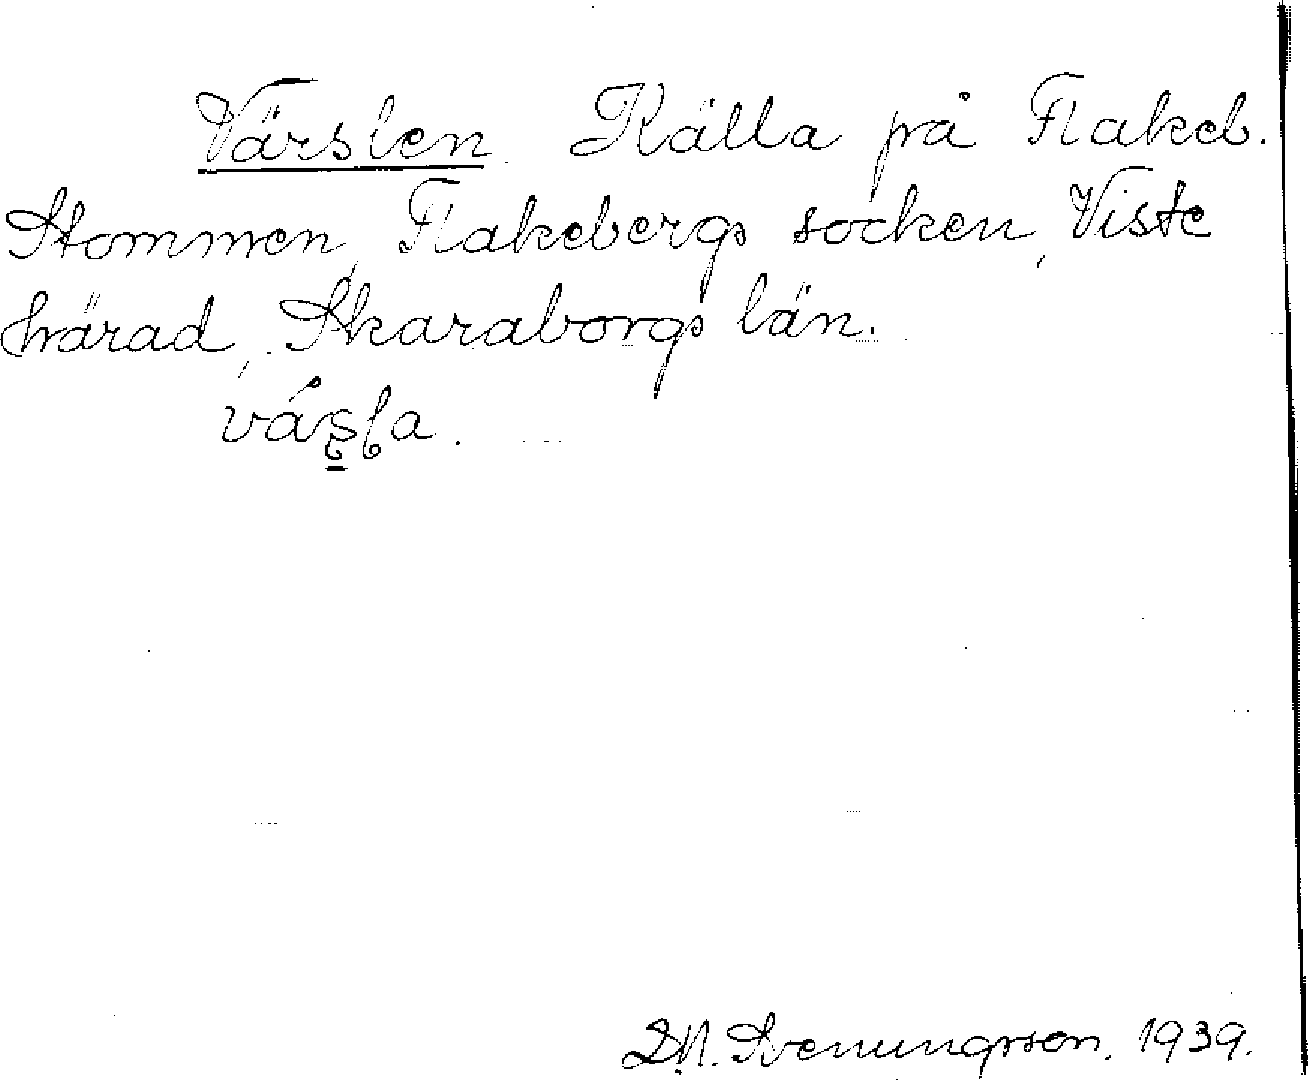 Värslen Källa på Flakeb.
Stommen, Flakebergs socken, Viste
härad, Skaraborgs län.
D.N. Svenungsson. 1939.